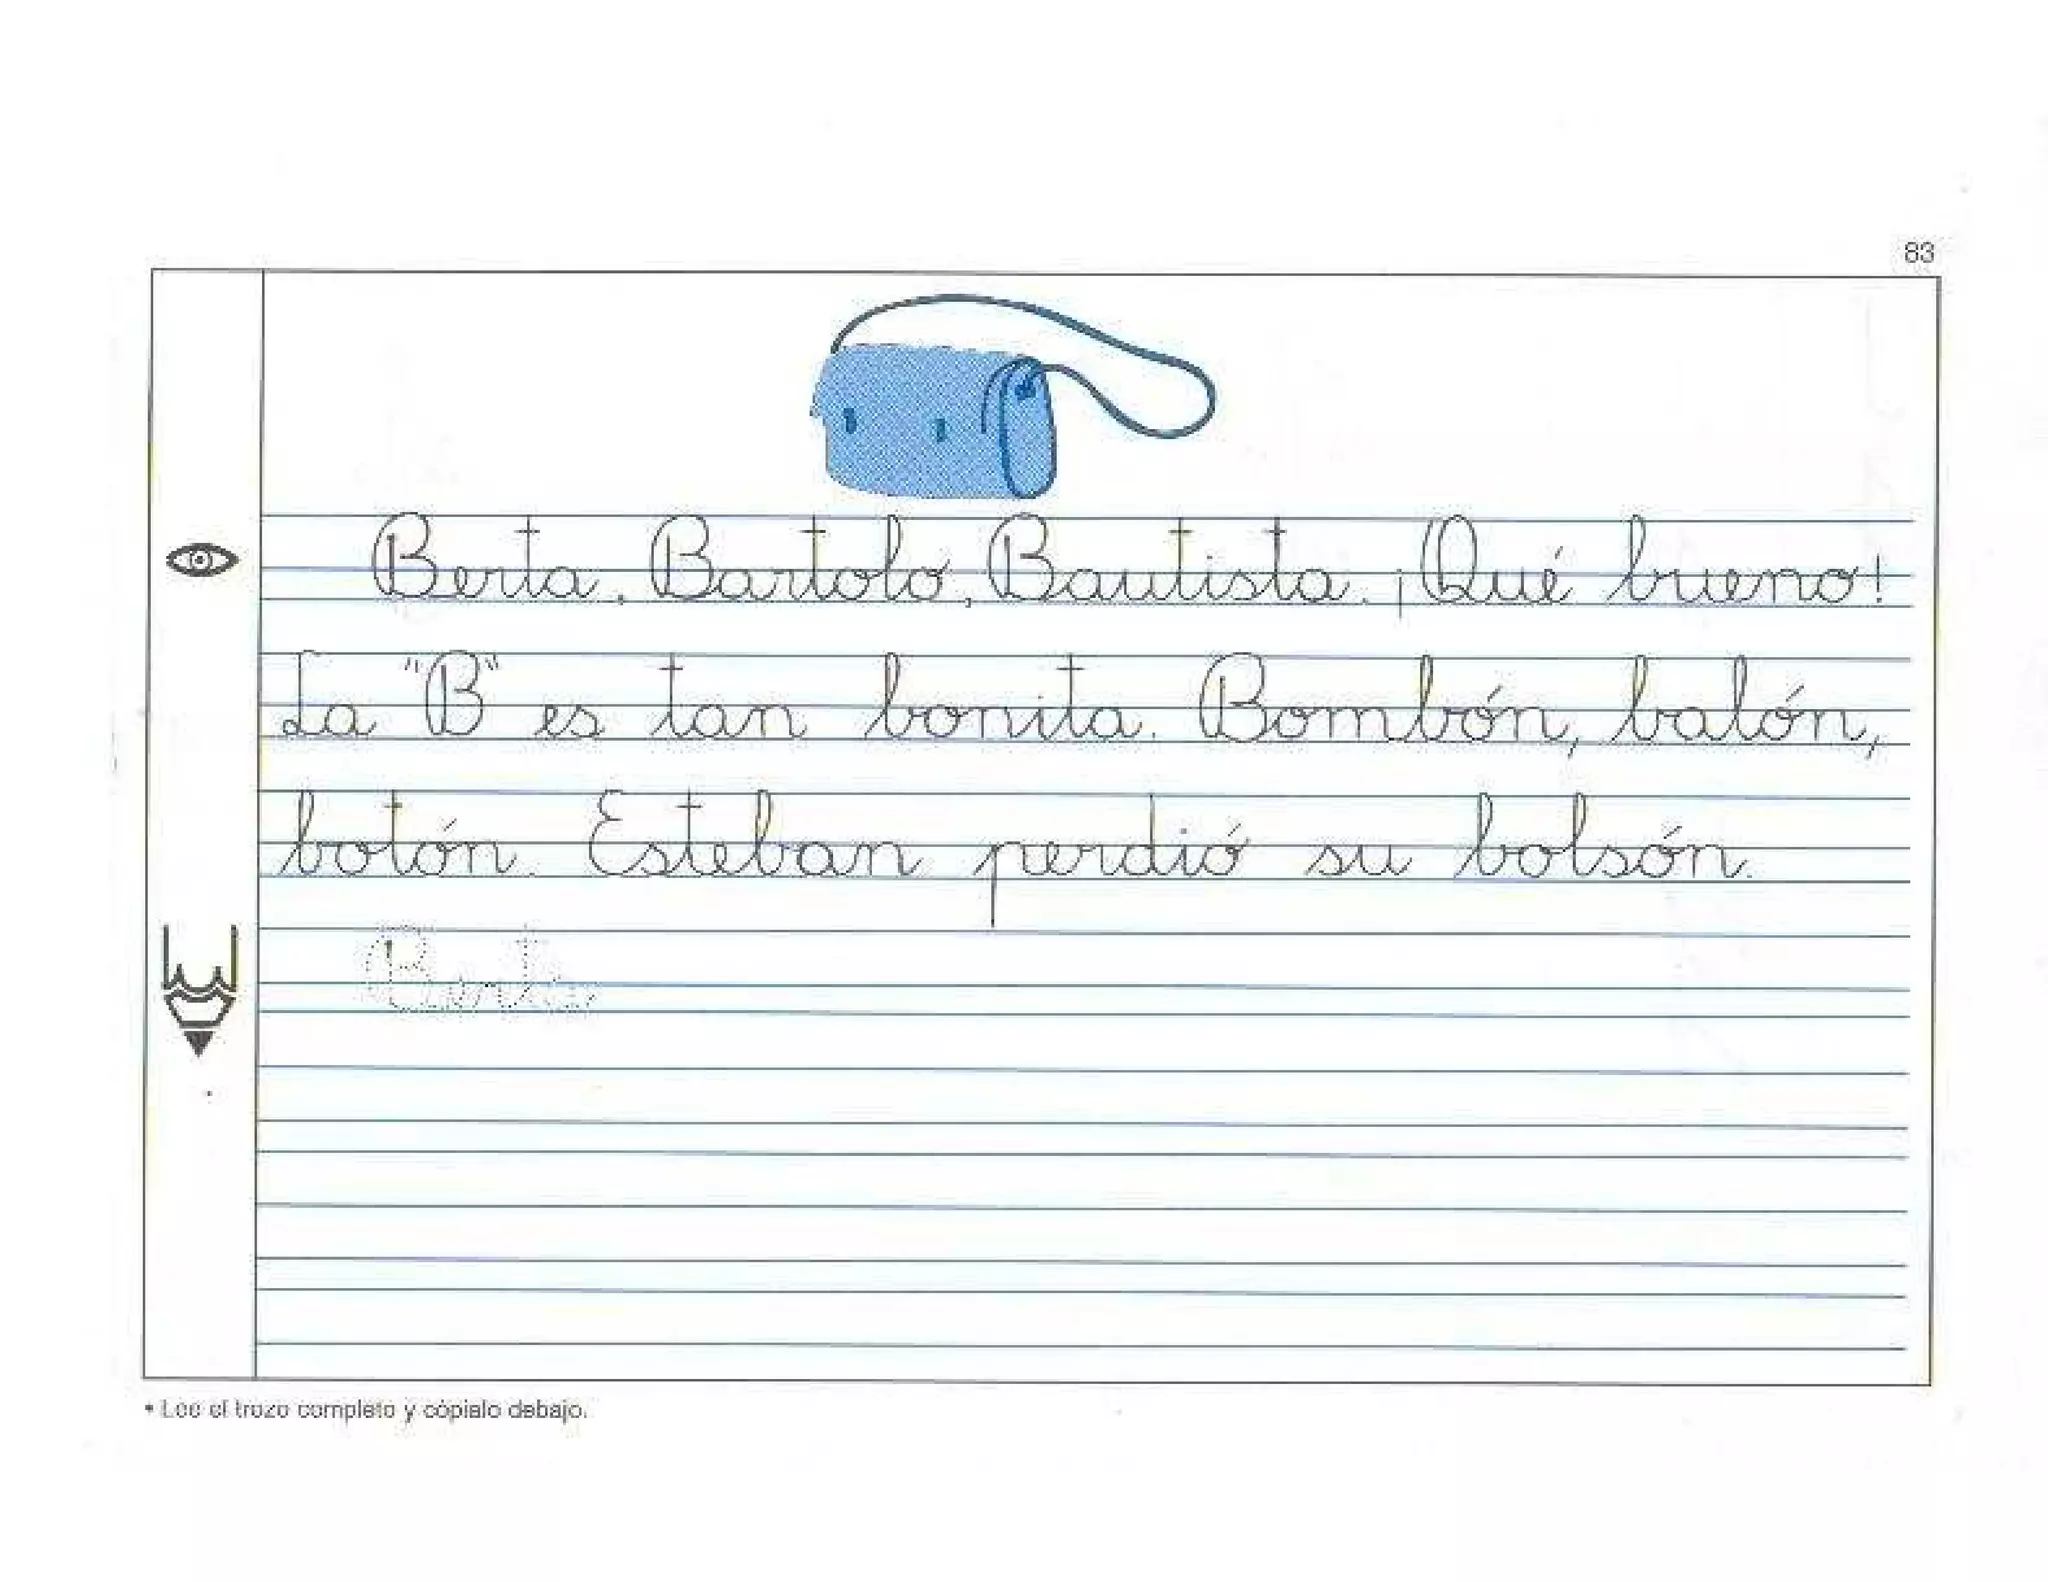 83
Berta, Bartolo, Bautista. ¡Qué bueno!
La "B" es tan bonita. Bombón, balón,
botón. Esteban perdió su bolsón.
Berta
• Lee el trozo completo y cópialo debajo.